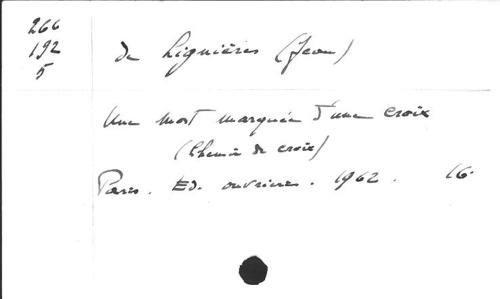 266
192
5
de Lignières (Jean)
Une mort marquée d'une croix
(Chemin de croix)
Paris. Ed. ouvrieres. 1962. 16.